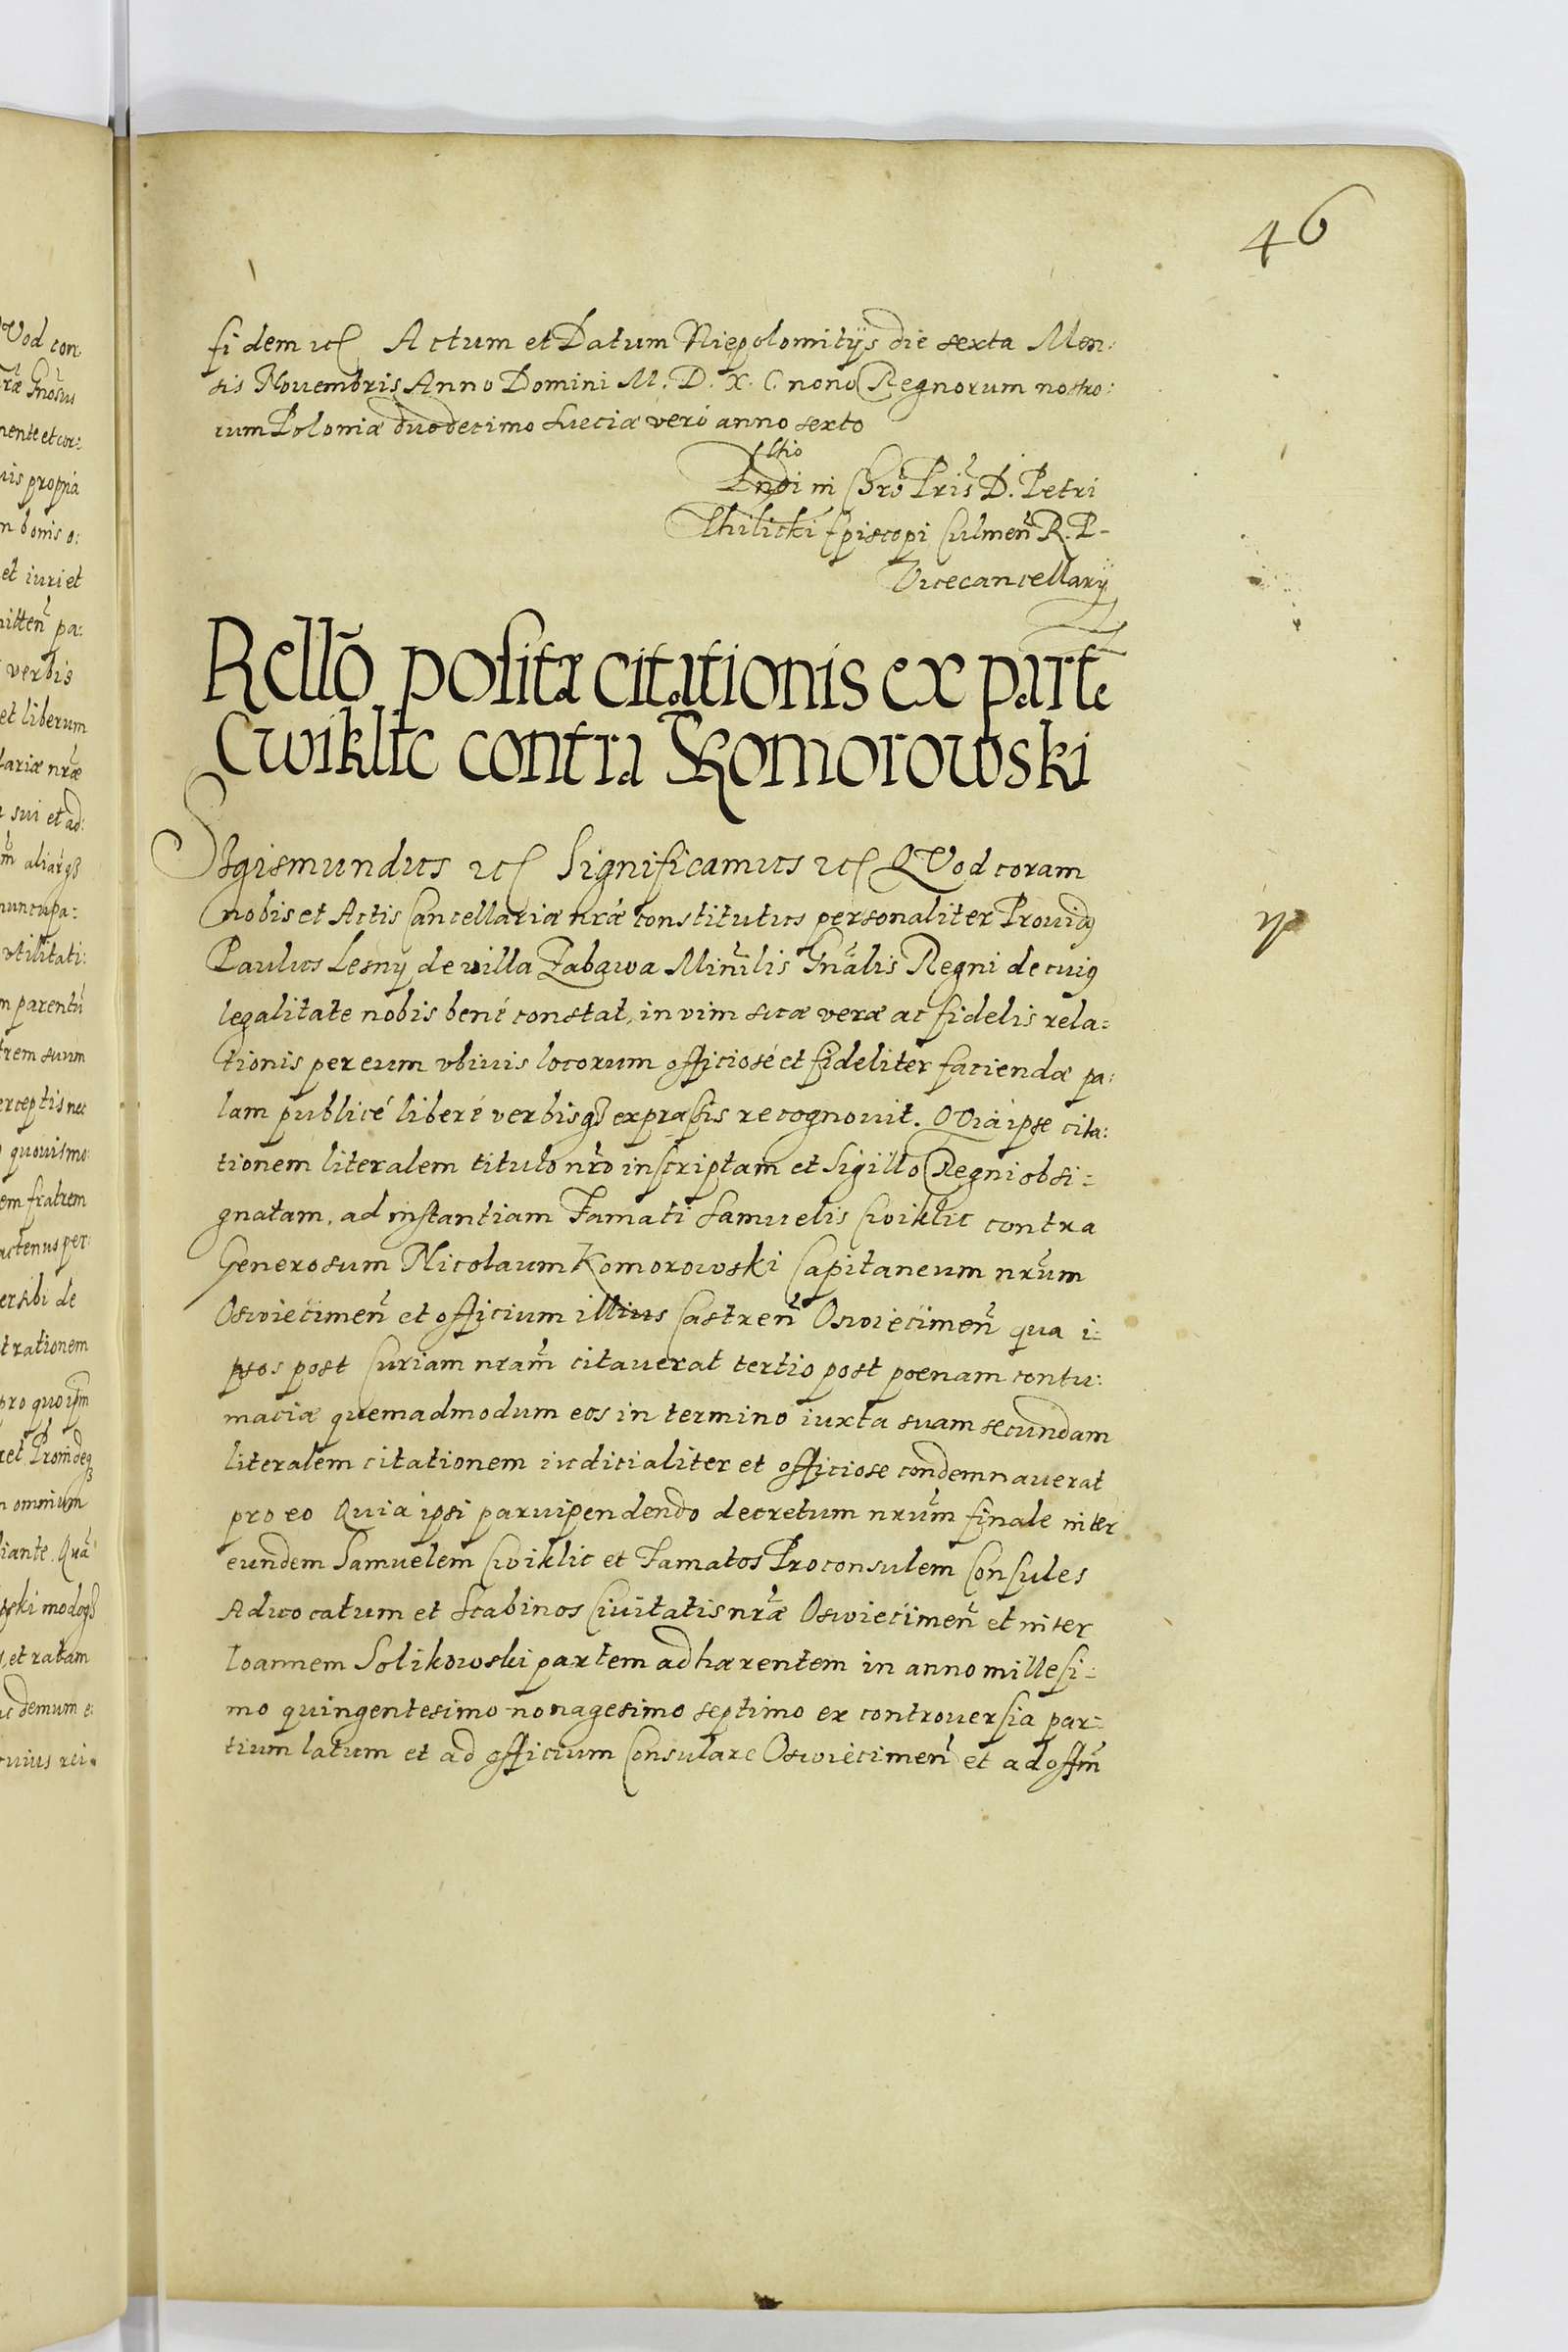 46
fidem etc Actum et Datum Niepolomitijs die sexta Men:
sis Nouembris Anno Domini M. D. X. C. nono Regnorum nostro:
rum Poloniæ duodecimo Sueciæ veró anno sexto
Rndi in Chrõ Pris̃ D. Petri
Thilicki Episcopi Culmeñ R. P.
Vicecancellarij
Rellõ positæ citationis ex parte
Cwiklic contra Komorowski
Sigismundus etc Significamus etc QVod coram
nobis et Actis Cancellariæ nræ̃ constitutus personaliter Prouidq
Paulus Lesny de villa Zabawa Miñrlis Gñalis Regni de cuiq
legalitate nobis bené constat, in vim suæ veræ ac fidelis rela:
tionis per eum vbiuis locorum officiosé et fideliter faciendæ pa:
lam publicé liberé verbisqꝫ expraßis recognouit. QVia ipse cita:
tionem literalem titulo nrõ inscriptam et Sigillo Regni obsi:
gnatam, ad instantiam Famati Samuelis Cwiklic contra
Generosum Nicolaum Komorowski Capitaneum nrũm
Oswiecimeñ et officium illius Castreñ Oswiecimeñ qua i:
psos post Curiam nram̃ citauerat tertio post poenam contu:
maciæ quemadmodum eos in termino iuxta suam secundam
literalem citationem iudicialiter et officiose condemnauerat
pro eo Quia ipsi paruipendendo decretum nrũm finale inter
eundem Samuelem Cwiklic et Famatos Proconsulem Consules
Aduocatum et Scabinos Ciuitatis nræ̃ Oswiecimeñ et inter
Ioannem Solikowski partem adhærentem in anno millesi:
mo quingentesimo nonagesimo septimo ex controuersia par:
tium latum et ad officium Consulare Oswiecimeñ et ad offm̃